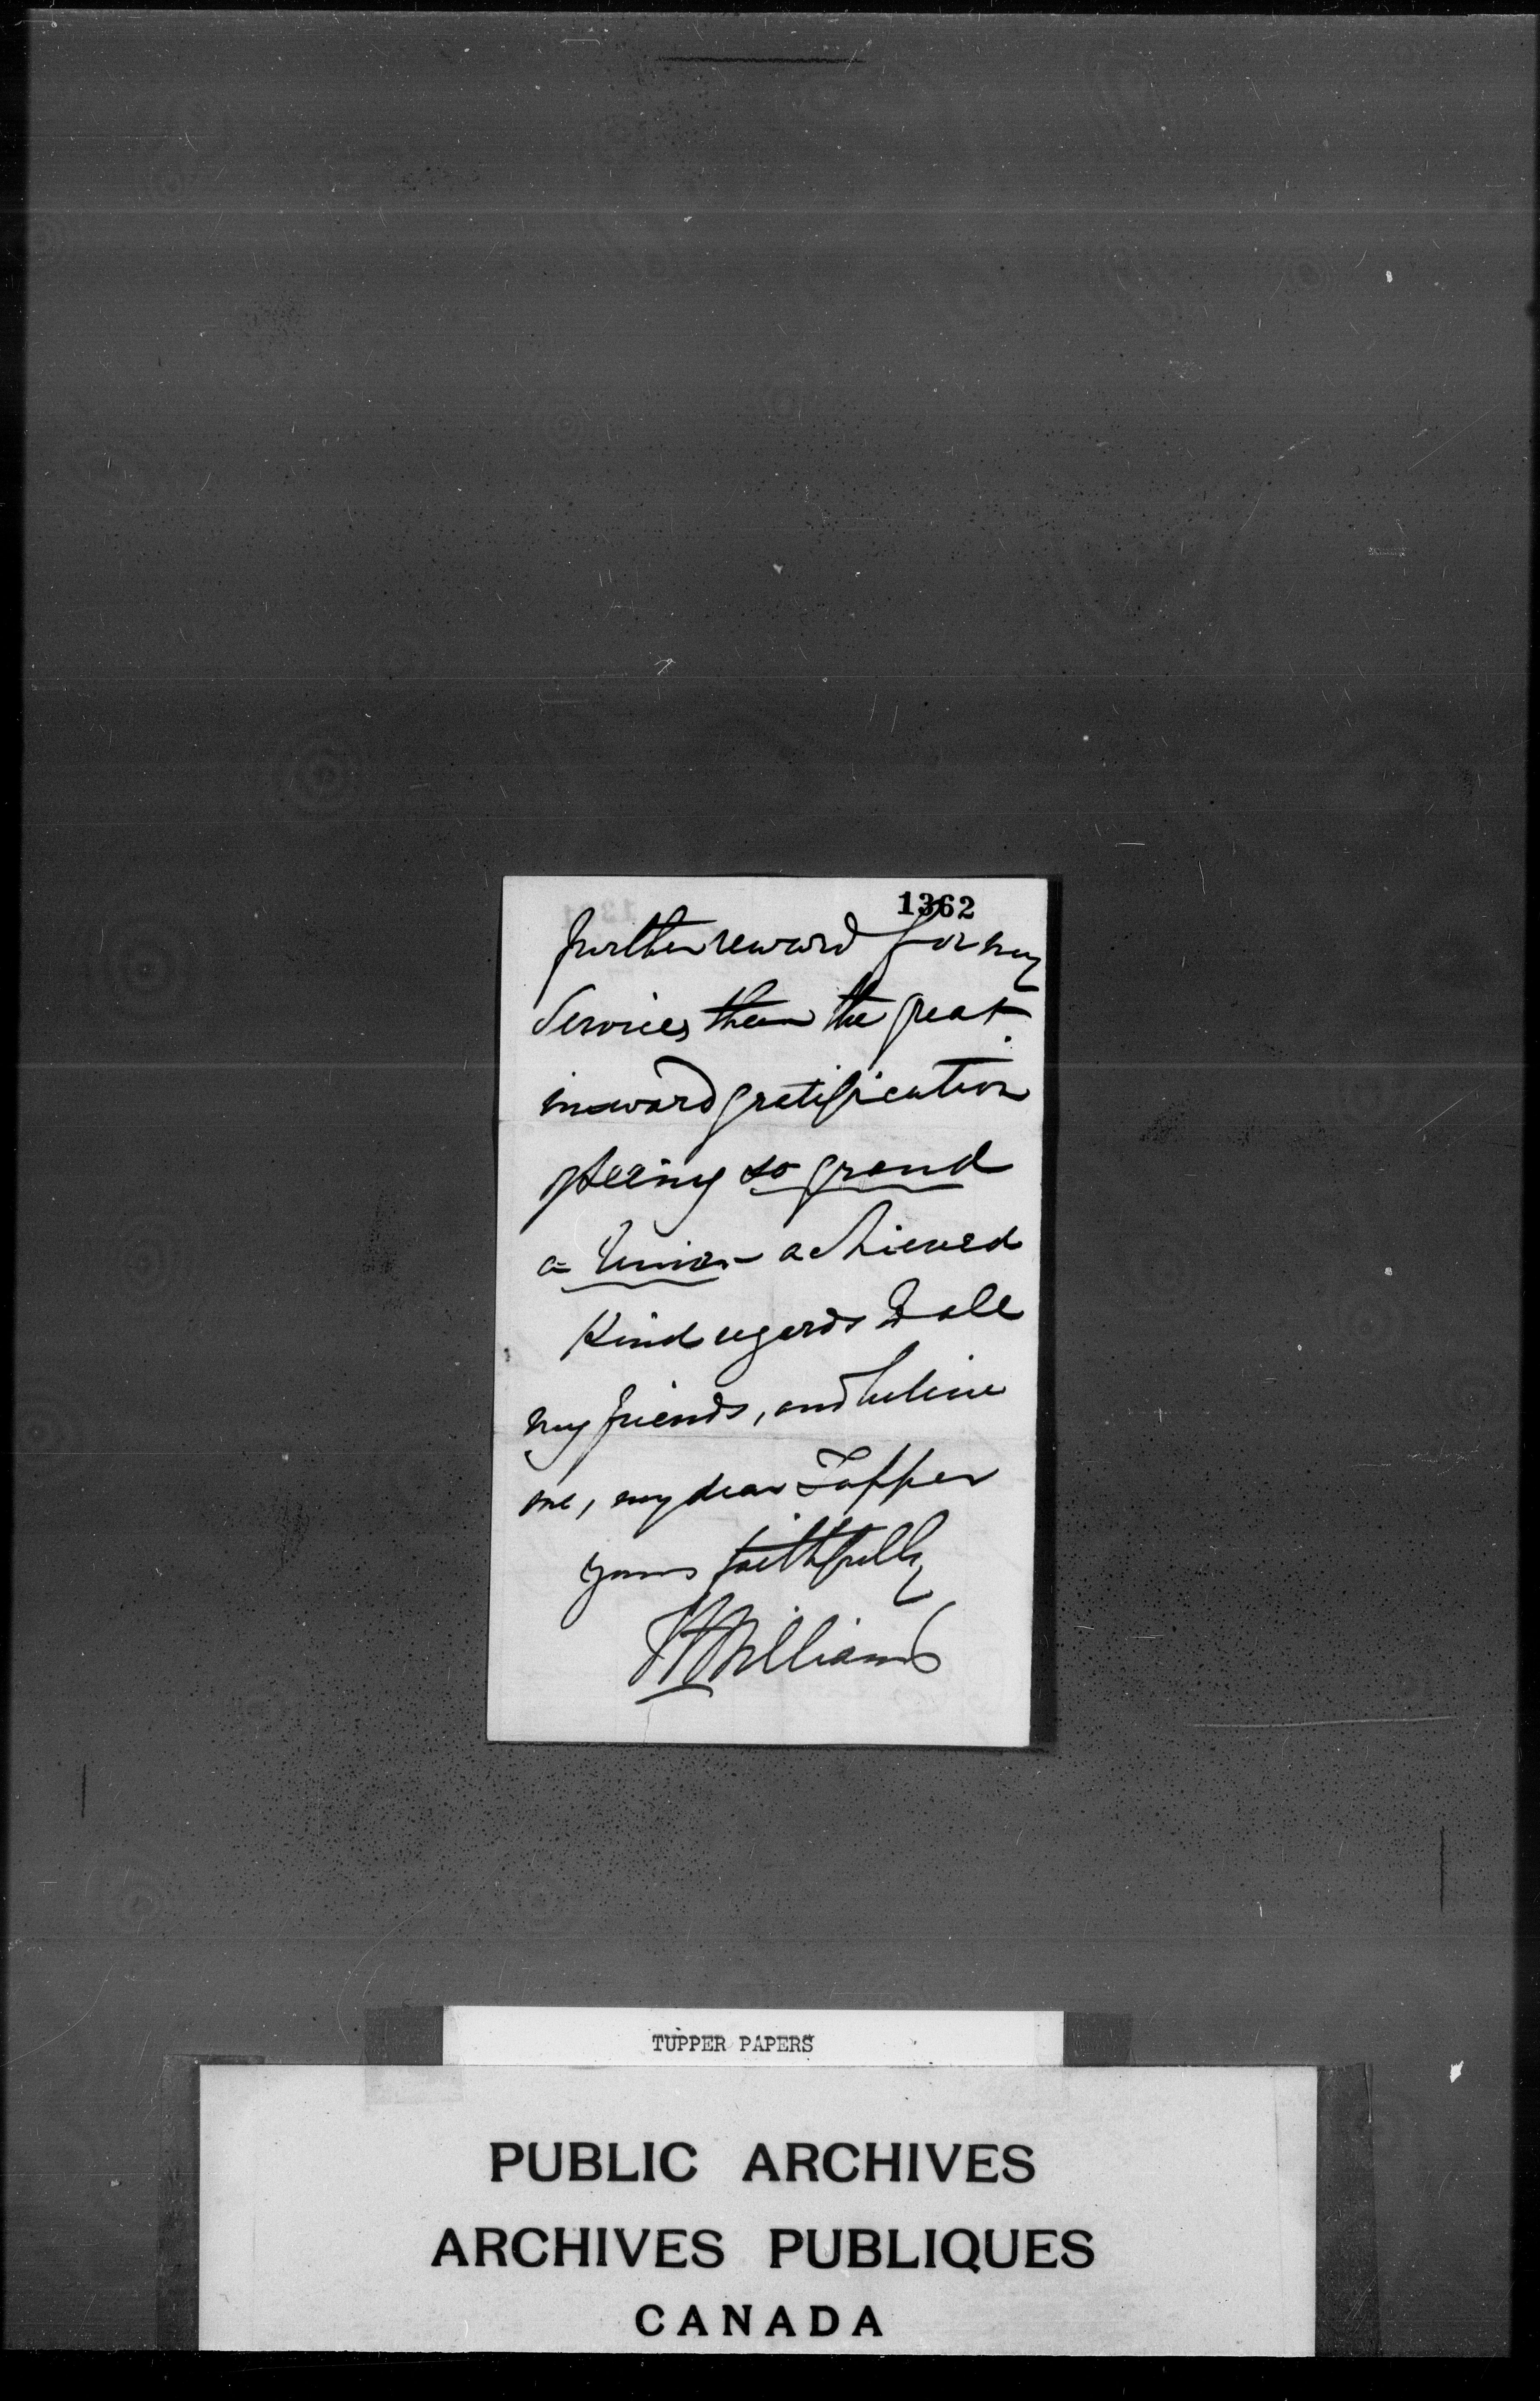 1362
further reward for my
Services than the great
inward gratification
of seeing so grand
a Union achieved
Kind regards to all
my friends, and believe
me, my dear Tupper
yours faithfully
Williams
TUPPER PAPERS
PUBLIC ARCHIVES
ARCHIVES PUBLIQUES
CANADA